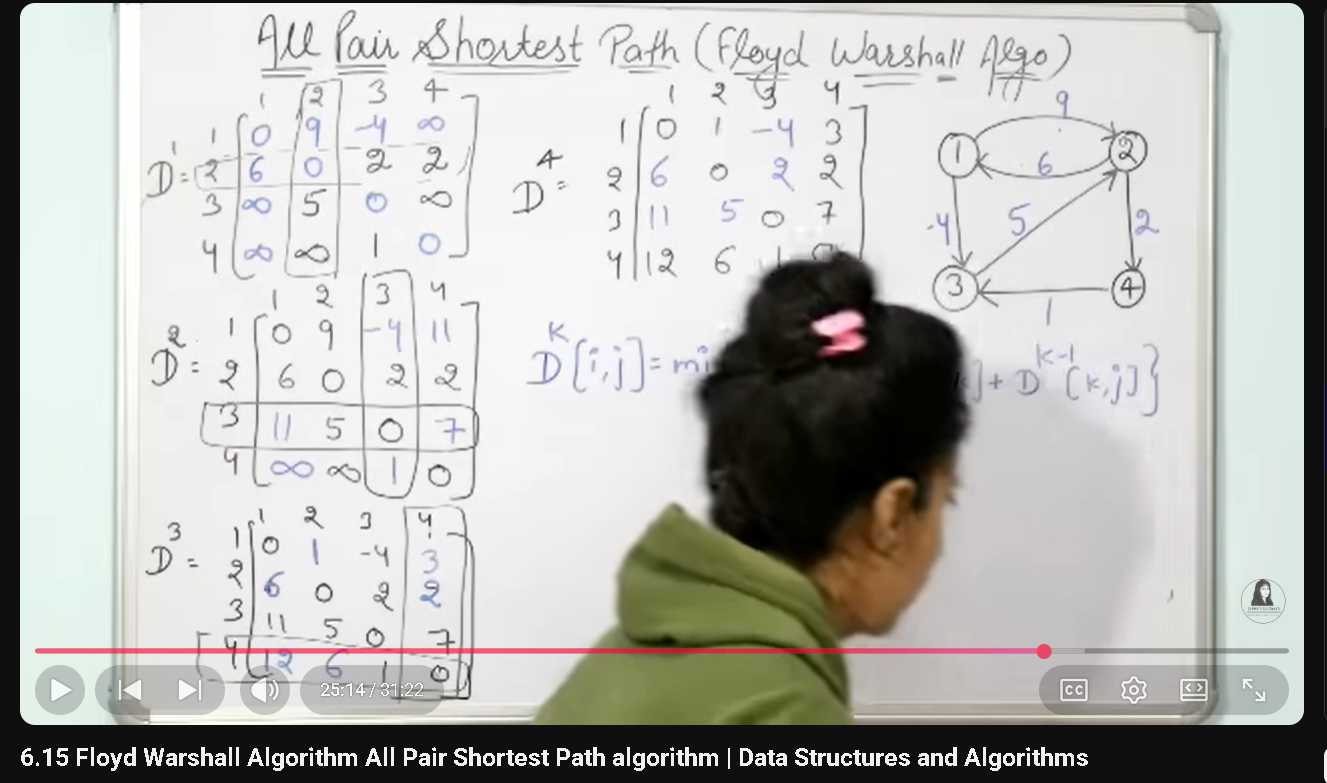 All Pair Shortest Path (Floyd Warshall Algo)
1 2 3 4
1 0 9 -4 ∞
D¹= 2 6 0 2 2
3 ∞ 5 0 ∞
4 ∞ ∞ 1 0
1 2 3 4
1 0 9 -4 11
D²= 2 6 0 2 2
3 11 5 0 7
4 ∞ ∞ 1 0
1 2 3 4
1 0 1 -4 3
D³= 2 6 0 2 2
3 11 5 0 7
4 12 6 1 0
1 2 3 4
1 0 1 -4 3
D⁴= 2 6 0 2 2
3 11 5 0 7
4 12 6
9
1 2
6
-4 5 2
3 4
1
Dᴷ[i,j]= mi
]+ Dᴷ⁻¹[k,j]}
25:14 / 31:22
CC
6.15 Floyd Warshall Algorithm All Pair Shortest Path algorithm | Data Structures and Algorithms